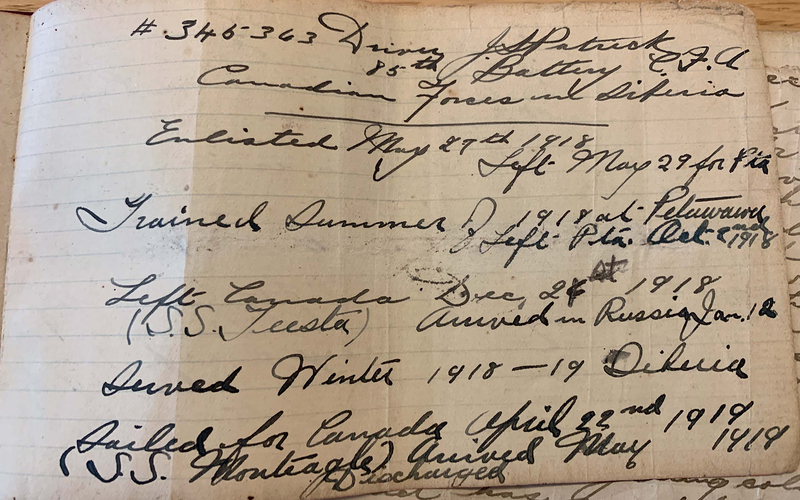 #.345363 Driver J.S. Patrick
85th Battery C.F.A
Canadian Forces in Siberia
Enlisted May 27th 1918
Left May 29 for Pta
Trained Summer of 1918 at Petawawa
Left Pta. Oct. 2nd 1918
Left Canada Dec, 26 1918
(S.S. Teesta) Arrived in Russia Jan. 12
Served Winter 1918-19 Siberia
Sailed for Canada April 22nd 1919
(S.S. Monteagle) Arrived May 1919
Discharged